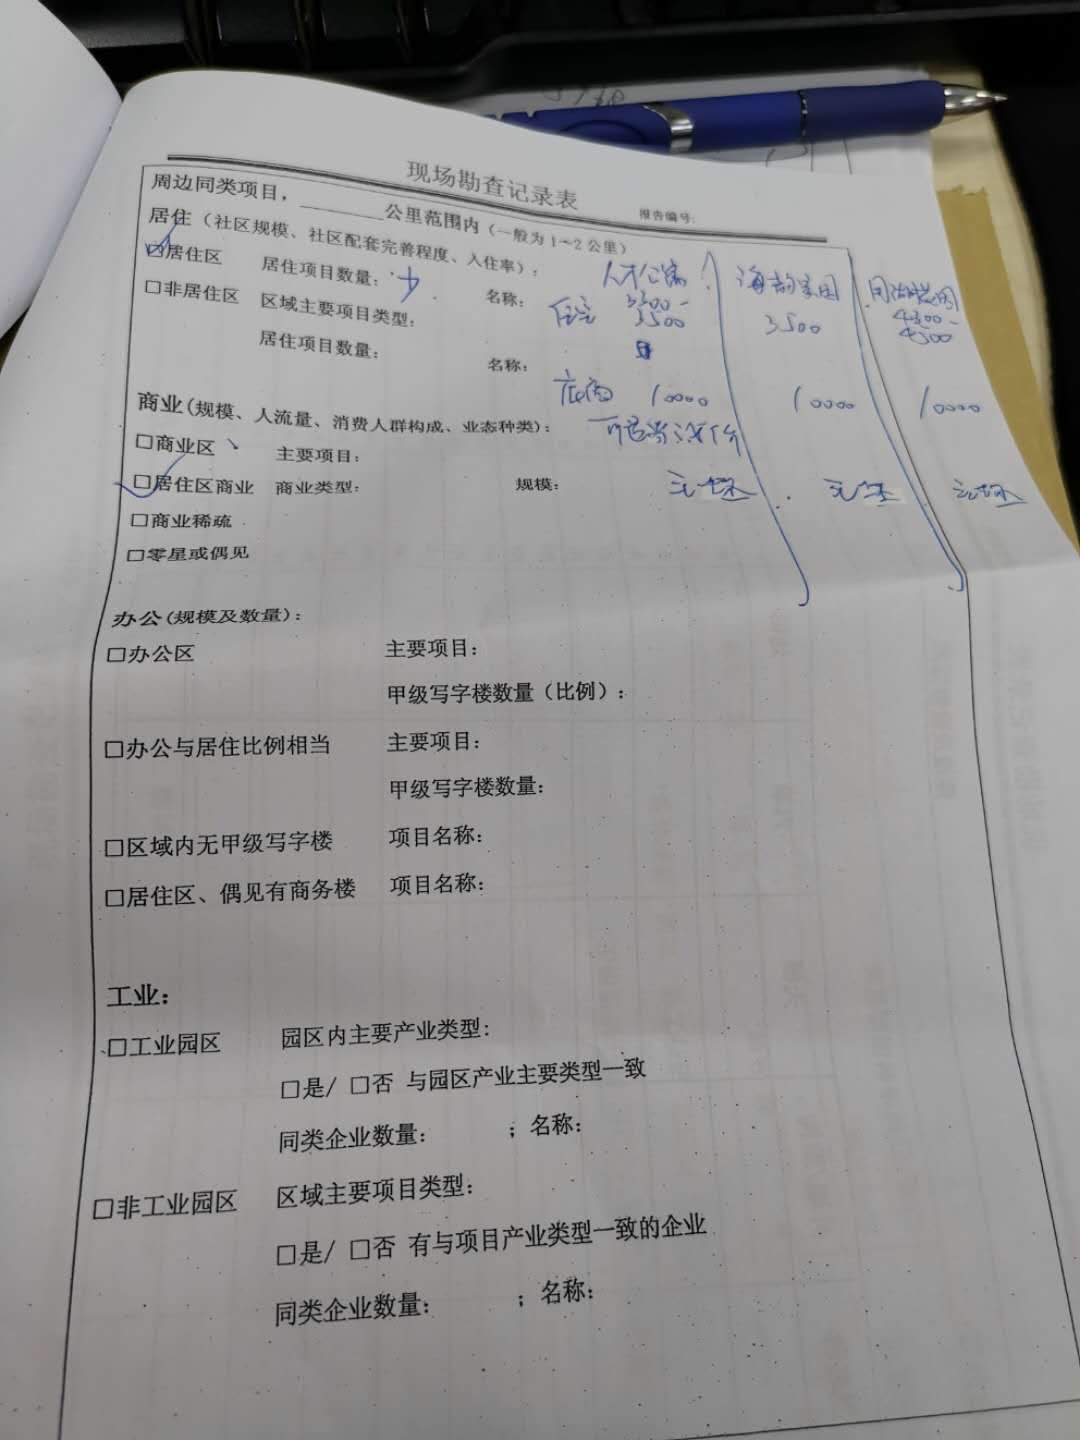 现场勘查记录表
报告编号:
周边同类项目，________公里范围内（一般为1～2公里）
居住（社区规模、社区配套完善程度、入住率）:
☑居住区 居住项目数量: 少. 名称: 人才公寓 海韵家园
□非居住区 区域主要项目类型: 住宅 3300-3500 3500 4300-4500
居住项目数量: 名称:
店面 10000 10000 10000
商业(规模、人流量、消费人群构成、业态种类):
□商业区 主要项目:
☑居住区商业 商业类型: 规模: 毛坯 毛坯 毛坯
□商业稀疏
□零星或偶见
办公(规模及数量):
□办公区 主要项目:
甲级写字楼数量（比例）:
□办公与居住比例相当 主要项目:
甲级写字楼数量:
□区域内无甲级写字楼 项目名称:
□居住区、偶见有商务楼 项目名称:
工业:
□工业园区 园区内主要产业类型:
□是/ □否 与园区产业主要类型一致
同类企业数量: ；名称:
□非工业园区 区域主要项目类型:
□是/ □否 有与项目产业类型一致的企业
同类企业数量: ；名称: